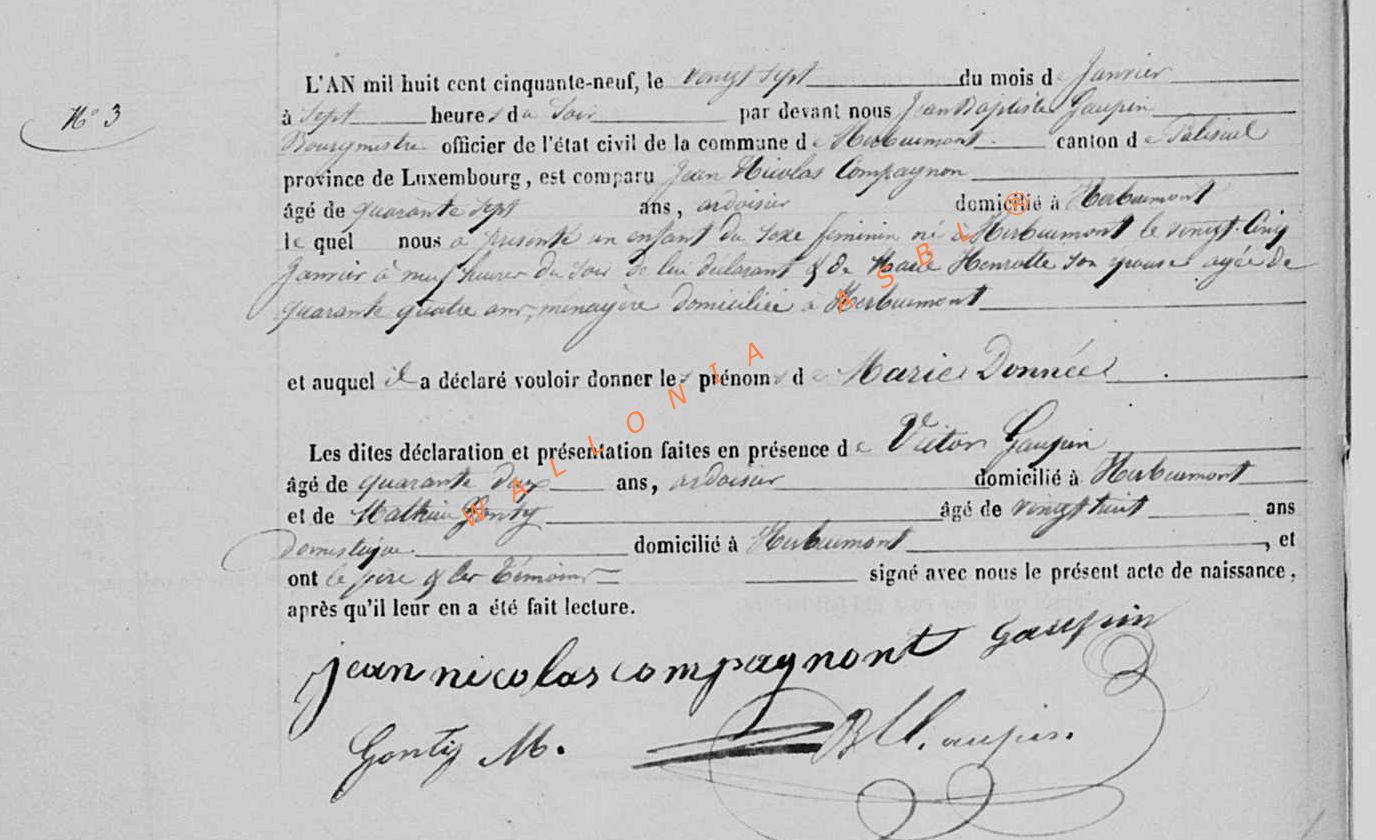 N° 3
L'AN mil huit cent cinquante-neuf, le vingt sept du mois de Janvier
à Sept heures du Soir par devant nous Jean Baptiste Gaupin
Bourgmestre officier de l'état civil de la commune de Herbeumont canton de Paliseul
province de Luxembourg, est comparu Jean Nicolas Compagnon
âgé de quarante sept ans, ardoisier domicilié à Herbeumont
lequel nous a présenté un enfant du sexe féminin né à Herbeumont le vingt-cinq
Janvier à neuf heures du soir de lui déclarant & de Marie Henrotte son épouse agée de
quarante quatre ans, ménagère domiciliée à Herbeumont
et auquel il a déclaré vouloir donner les prénoms de Marie Donnée
Les dites déclaration et présentation faites en présence de Victor Gaupin
âgé de quarante deux ans, ardoisier domicilié à Herbeumont
et de Mathieu Gonty âgé de vingt huit ans
domestique domicilié à Herbeumont, et
ont le père & les témoins signé avec nous le présent acte de naissance,
après qu'il leur en a été fait lecture.
jean nicolas compagnont Gaupin
Gonty M. Gaupin.
WALLONIA ASBL ®